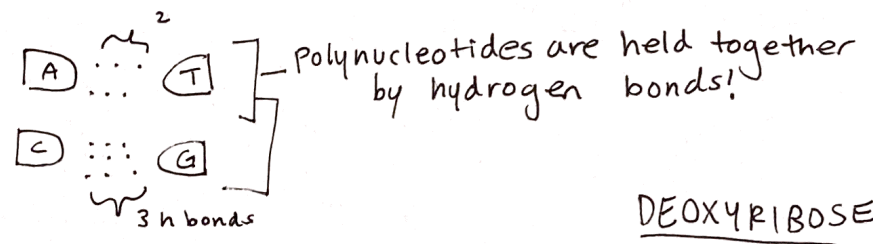 2
A T
Polynucleotides are held together
by hydrogen bonds!
C G
3 h bonds
DEOXYRIBOSE